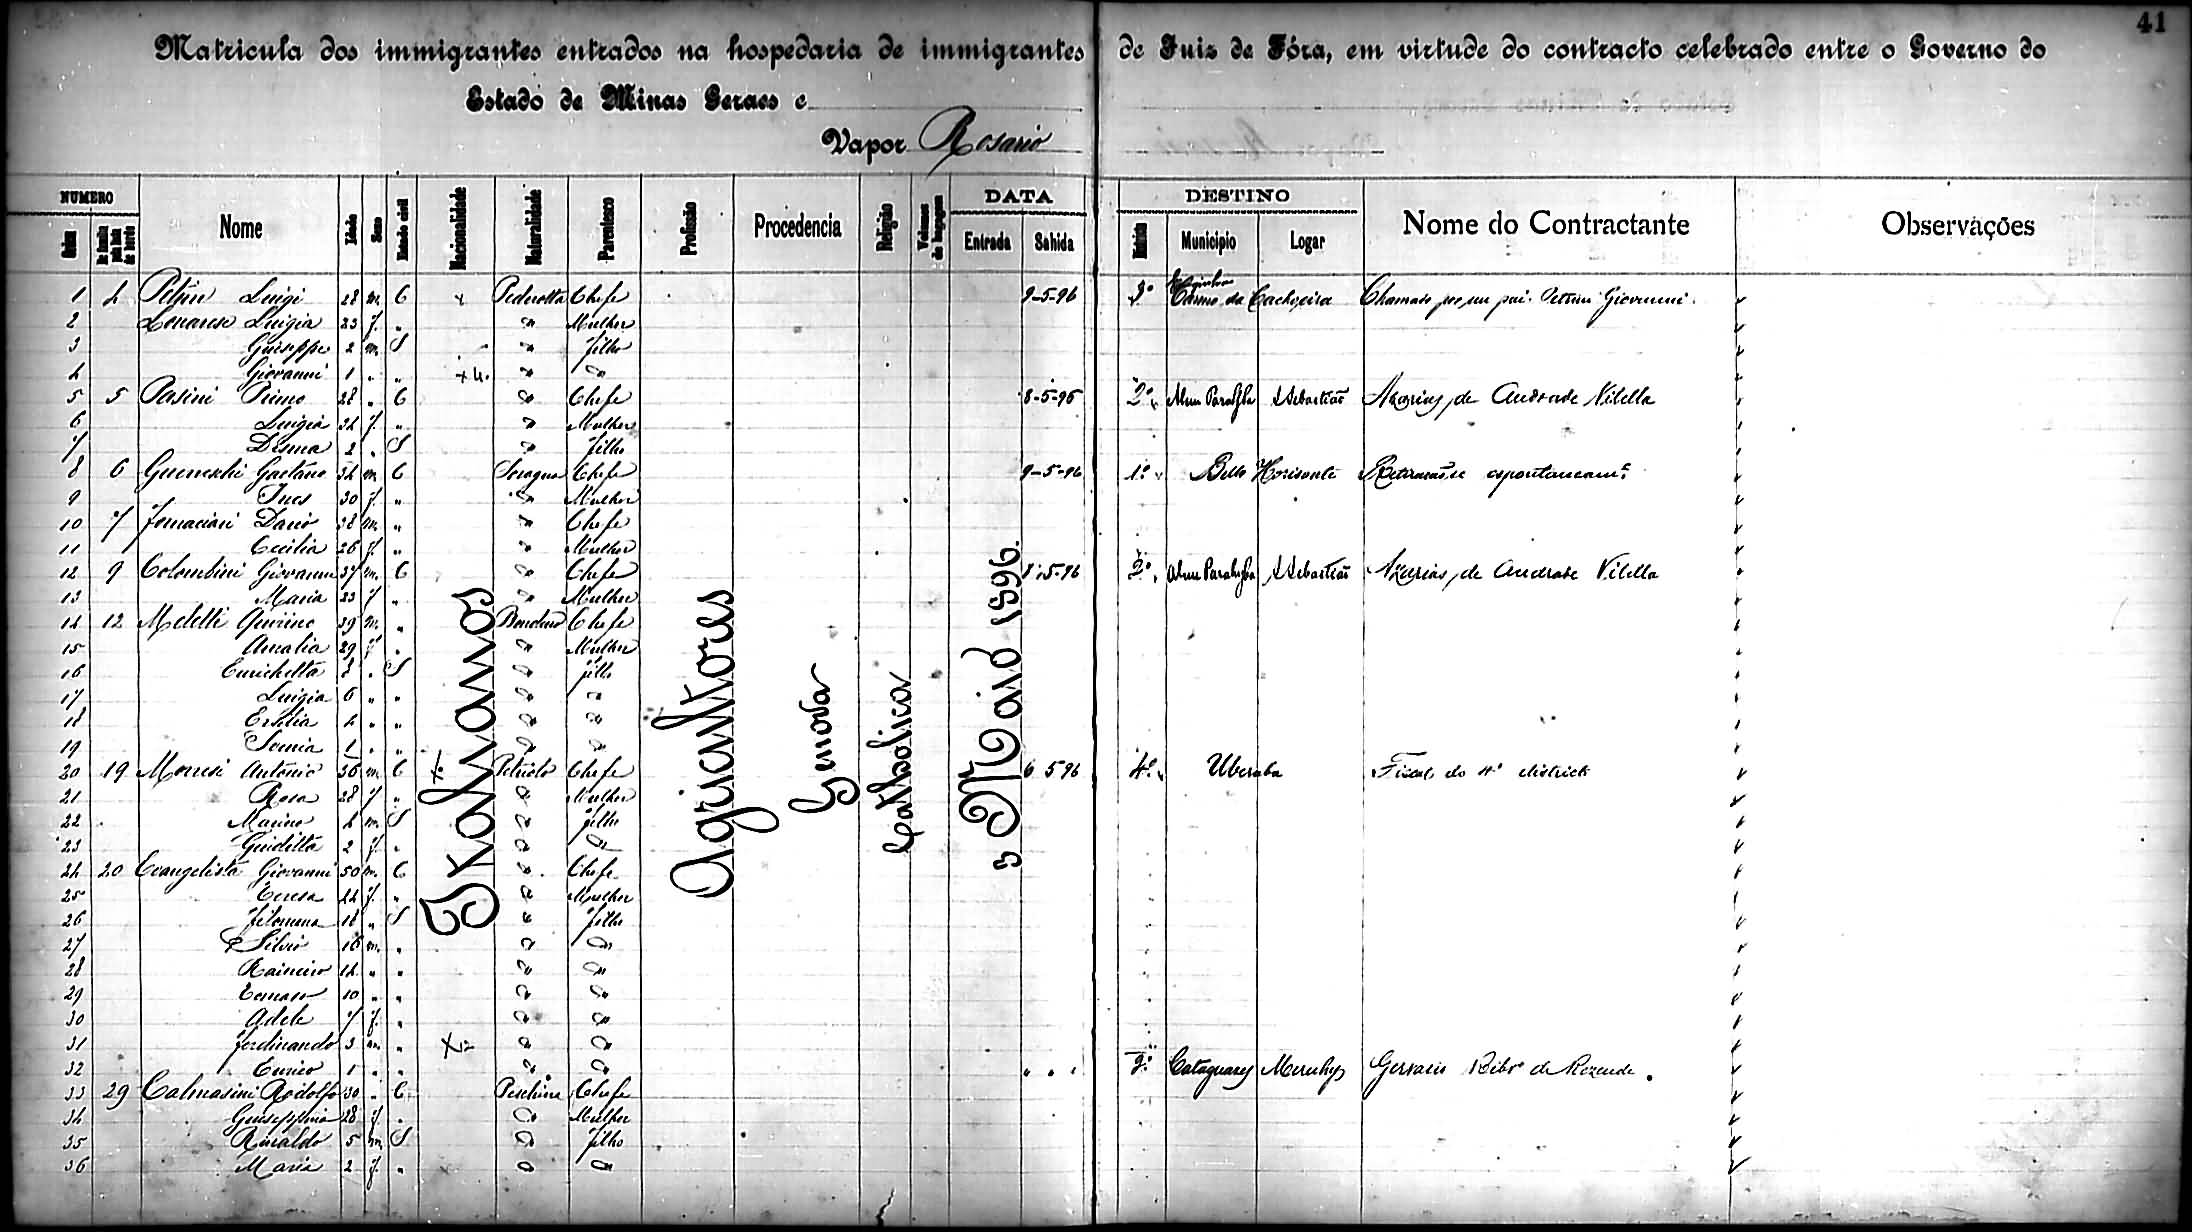 41
Matricula dos immigrantes entrados na hospedaria de immigrantes de Juiz de Fóra, em virtude do contracto celebrado entre o Governo do
Estado de Minas Geraes e
Vapor Rosario
NUMERO Nome Idade Sexo Estado civil Nacionalidade Naturalidade Parentesco Profissão Procedencia Religião Volumes de bagagem DATA DESTINO Nome do Contractante Observações
Ordem Entrada Sahida Municipio Logar
Italianos
Agricultores
Genova
Catholica
3 Maio 1896.
1 4 Luigi 28 m. C Chefe 9-5-96 Cachoeira Chamado por seu pai Giovanni.
2 Luigia 23 f. " " Mulher
3 Giuseppe 2 m. S " filho
4 Giovanni 1 " " " "
5 5 Pasini Primo 28 " C " Chefe 8-5-96 2º Alem Parahyba S Sebastião Nazarias de Andrade Vilella
6 Luigia 34 f. " " Mulher
7 2 " S " filho
8 6 Gaetano 34 m. C Soragna Chefe 9-5-96 1º Bello Horisonte espontaneamte
9 Ines 30 f. " " Mulher
10 7 Fornaciari Dario 38 m. " " Chefe
11 Cecilia 26 f. " " Mulher
12 9 Colombini Giovanni 37 m. C " Chefe 8-5-96 2º Alem Parahyba S Sebastião de Andrade Vilella
13 Maria 23 f " " Mulher
14 12 Meletti Quirino 39 m. " Chefe
15 Amalia 29 f " " Mulher
16 Enrichetta 8 " S " filho
17 Luigia 6 " " " "
18 Ersilia 4 " " " "
19 1 " " " "
20 19 Antonio 36 m. C Petriolo Chefe 6 5 96 4º Uberaba Fiscal do 4º districto
21 Rosa 28 f " " Mulher
22 Marino 4 m. S " filho
23 Giuditta 2 f. " " "
24 20 Evangelista Giovanni 50 m. C " Chefe
25 Teresa 44 f. " " Mulher
26 Filomena 18 " S " filho
27 Silvio 16 m. " " "
28 Rainiero 14 " " " "
29 Tomaso 10 " " " "
30 Adele 7 f. " " "
31 Ferdinando 3 m. " " "
32 Enrico 1 " " " " " " " Cataguazes Gervasio Ribro de Rezende.
33 29 Calmasini Rodolfo 30 " C Peschiera Chefe
34 Giuseppina 28 f. " " Mulher
35 Rinaldo 5 m. S " filho
36 Maria 2 f. " " "